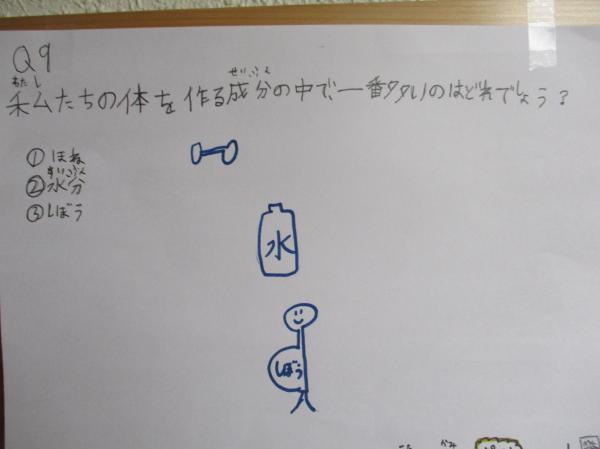 Q9
わたし せいぶん
私たちの体を作る成分の中で、一番多いのはどれでしょう？
①ほね
すいぶん
②水分
③しぼう
水
しぼう
かみ